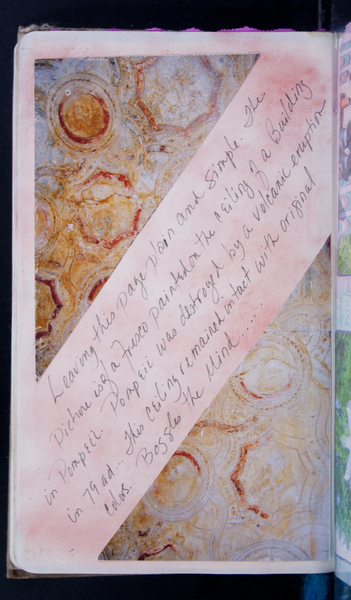 Leaving this page plain and simple. The
Picture is of a fresco painted on the ceiling of a Building
in Pompeii. Pompeii was destroyed by a volcanic eruption
in 79 ad... This ceiling remained intact with original
colors. Boggles the mind .....